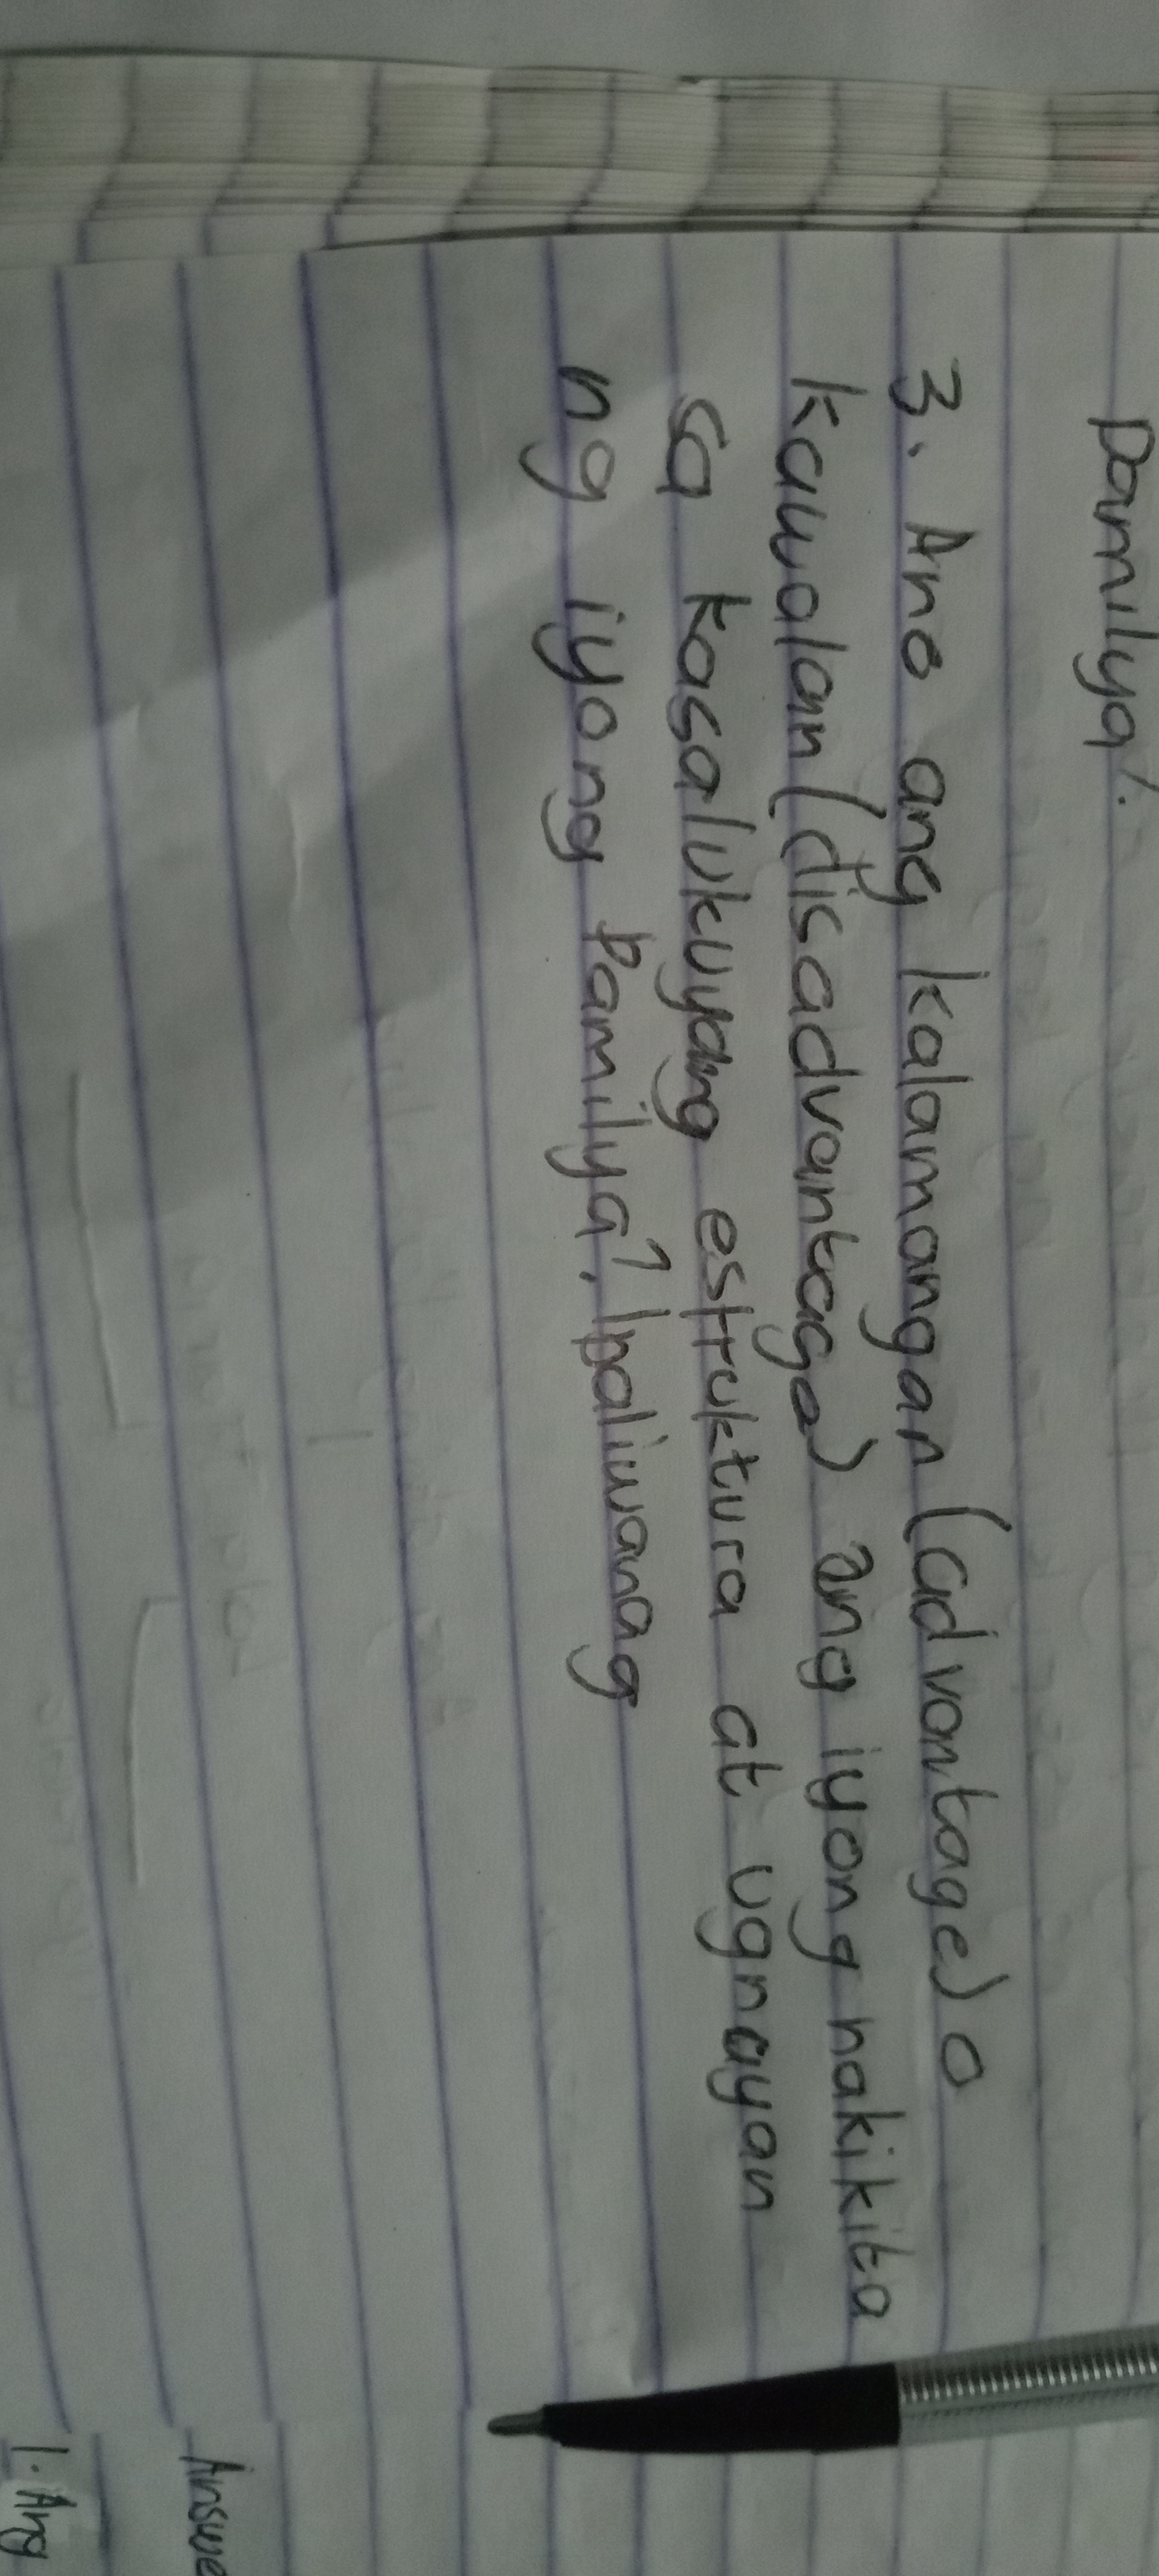 pamilya?.
3. Ano ang kalamangan (advantage) o
kawalan (disadvantage) ang iyong nakikita
sa kasalukuyang estruktura at ugnayan
ng iyong pamilya?. Ipaliwanag
Answe
1. Ang